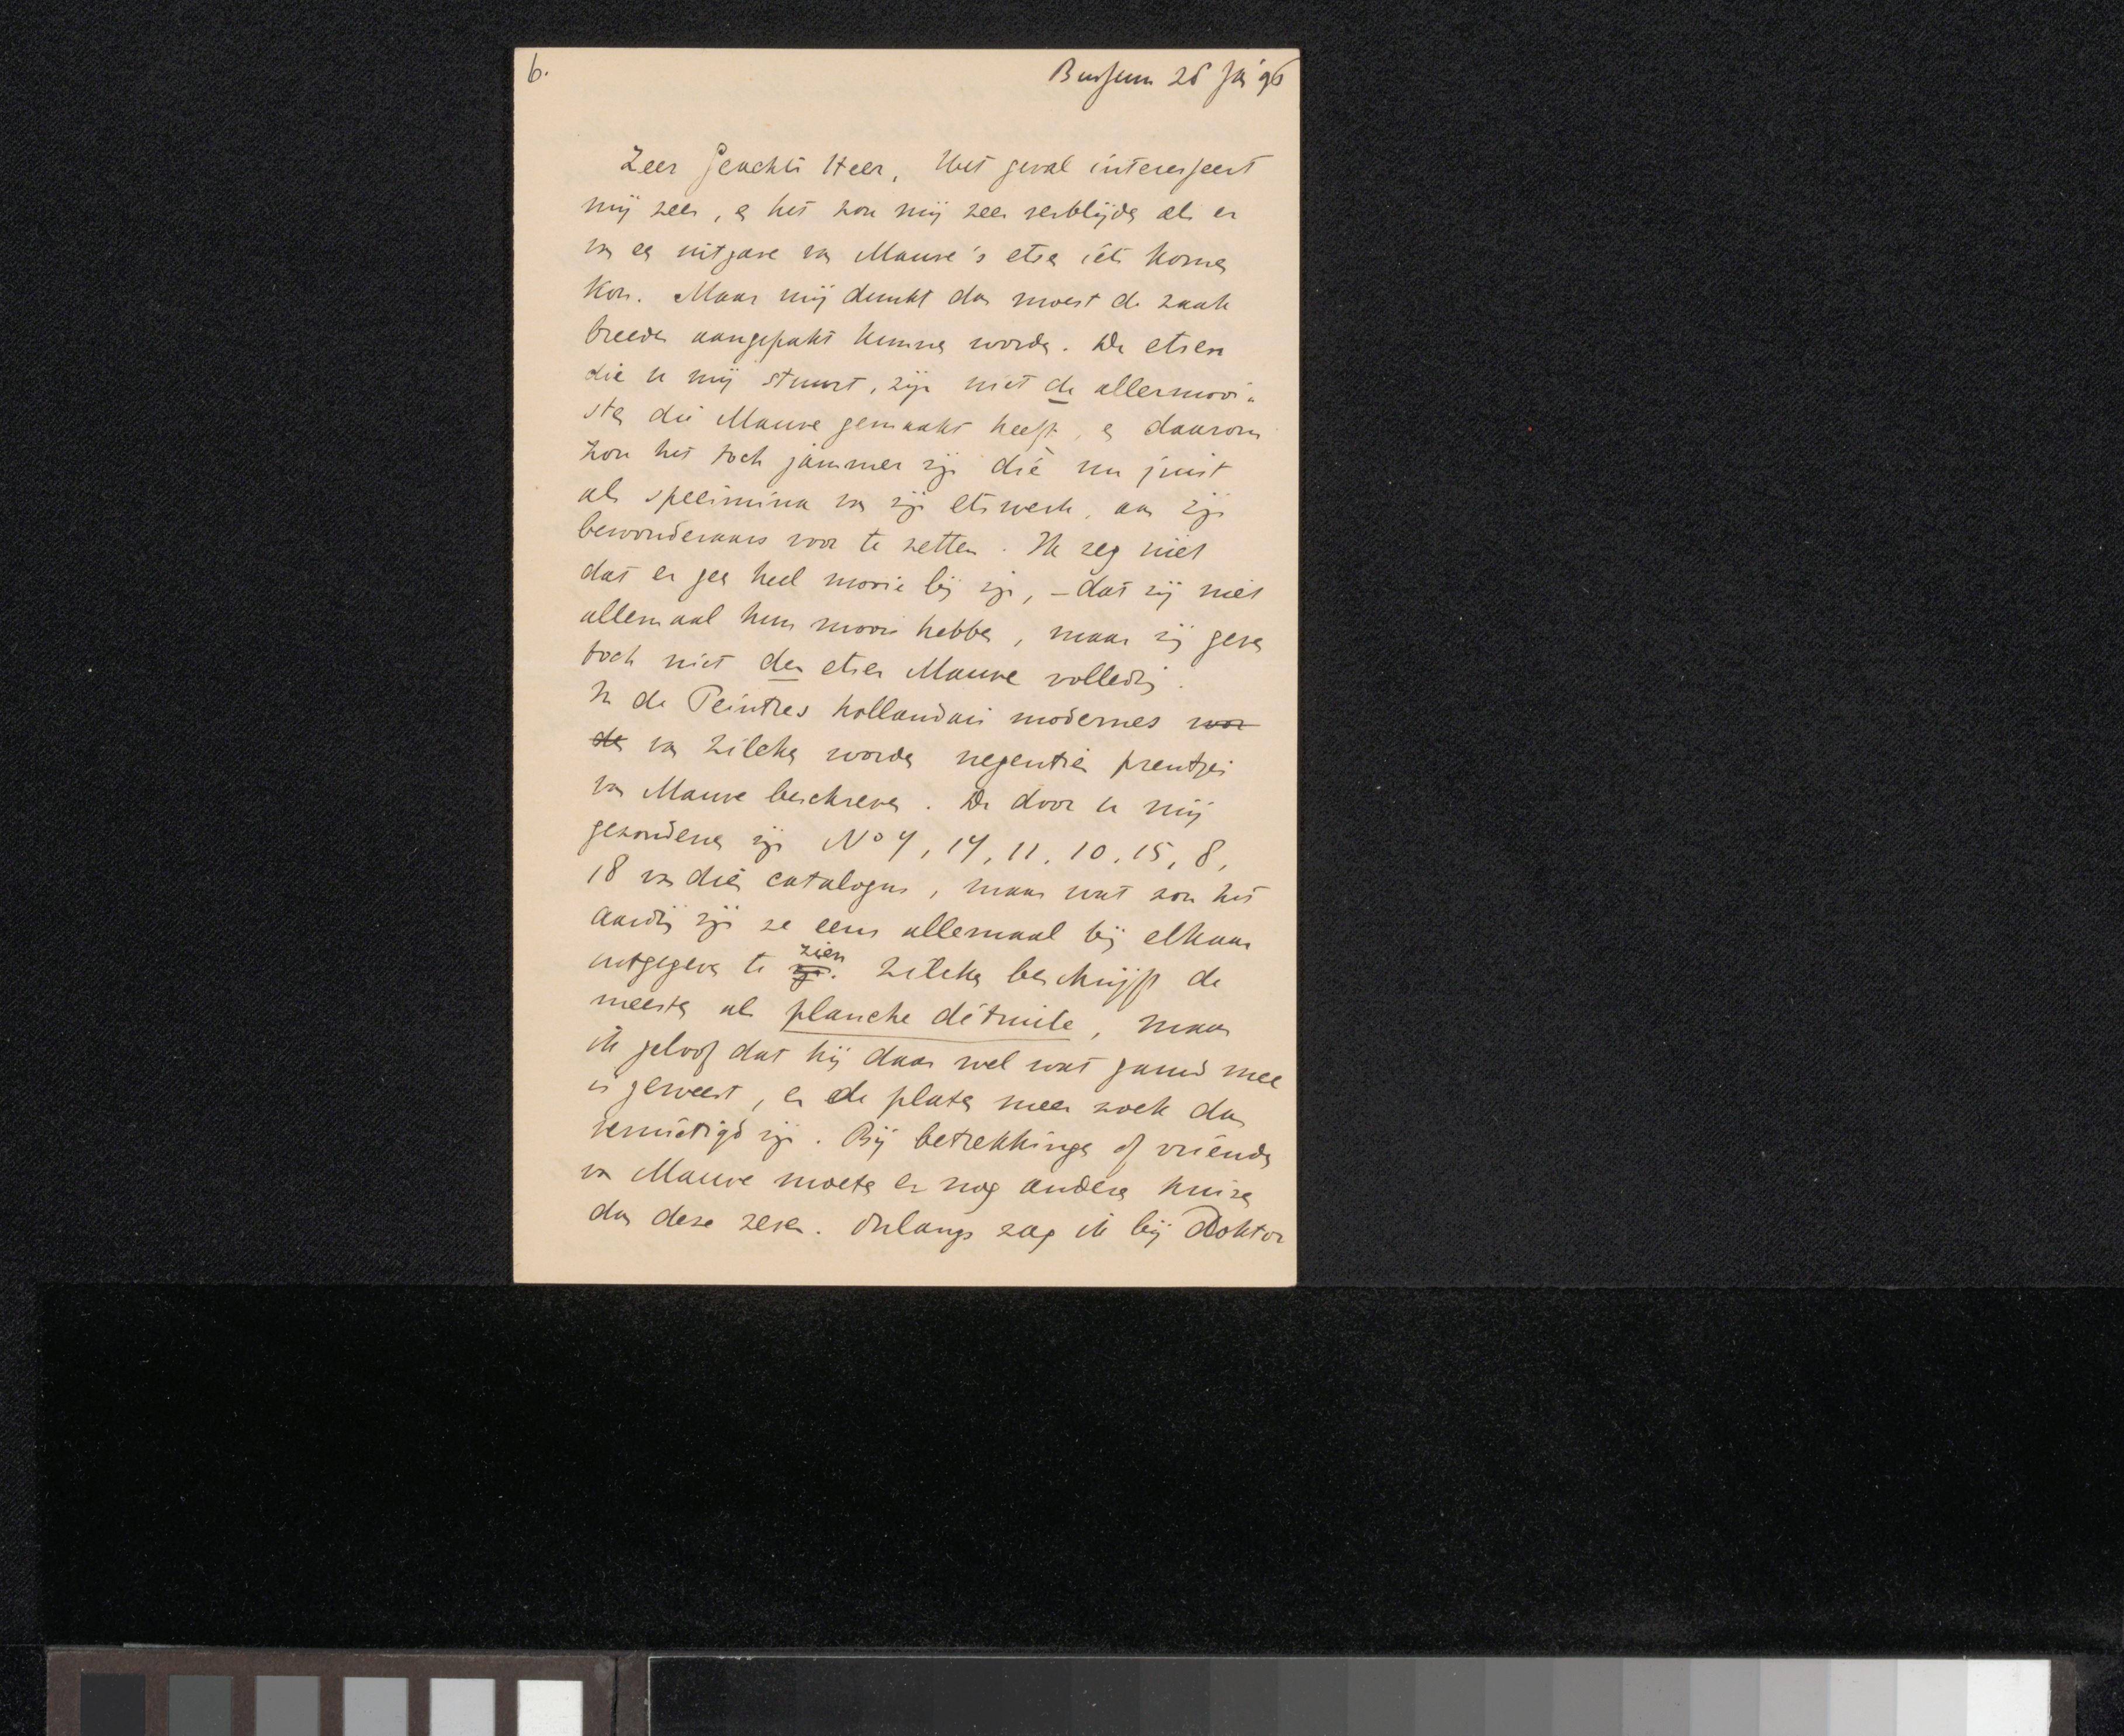 6.
Bussum 26 Jan '96
Zeer Geachte Heer, Het geval interesseert
mij zeer, en het zou mij zeer verblijden als er
van een uitgave van Mauve's etsen iets komen
kon. Maar mij dunkt dan moest de zaak
breeder aangepakt kunnen worden. De etsen
die u mij stuurt, zijn niet de allermooi-
sten die Mauve gemaakt heeft, en daarom
zou het toch jammer zijn die nu juist
als specimina van zijn etswerk, aan zijn
bewonderaars voor te zetten. Ik zeg niet
dat er geen heel mooie bij zijn, – dat zij niet
allemaal hun mooi hebben, maar zij geven
toch niet den etser Mauve volledig.
In de Peintres hollandais modernes wor
den van Zilcken worden negentien prentjes
van Mauve beschreven. De door u mij
gezondene zijn No 4, 14, 11, 10, 15, 8,
18 van dien catalogus, maar wat zou het
aardig zijn ze eens allemaal bij elkaar
uitgegeven te zijn zien. Zilcken beschrijft de
meesten als planche détruite, maar
ik geloof dat hij daar wel wat gauw mee
is geweest, en de platen meer zoek dan
vernietigd zijn. Bij betrekkingen of vrienden
van Mauve moeten er nog andere huizen
dan deze zeven. Onlangs zag ik bij Doktor